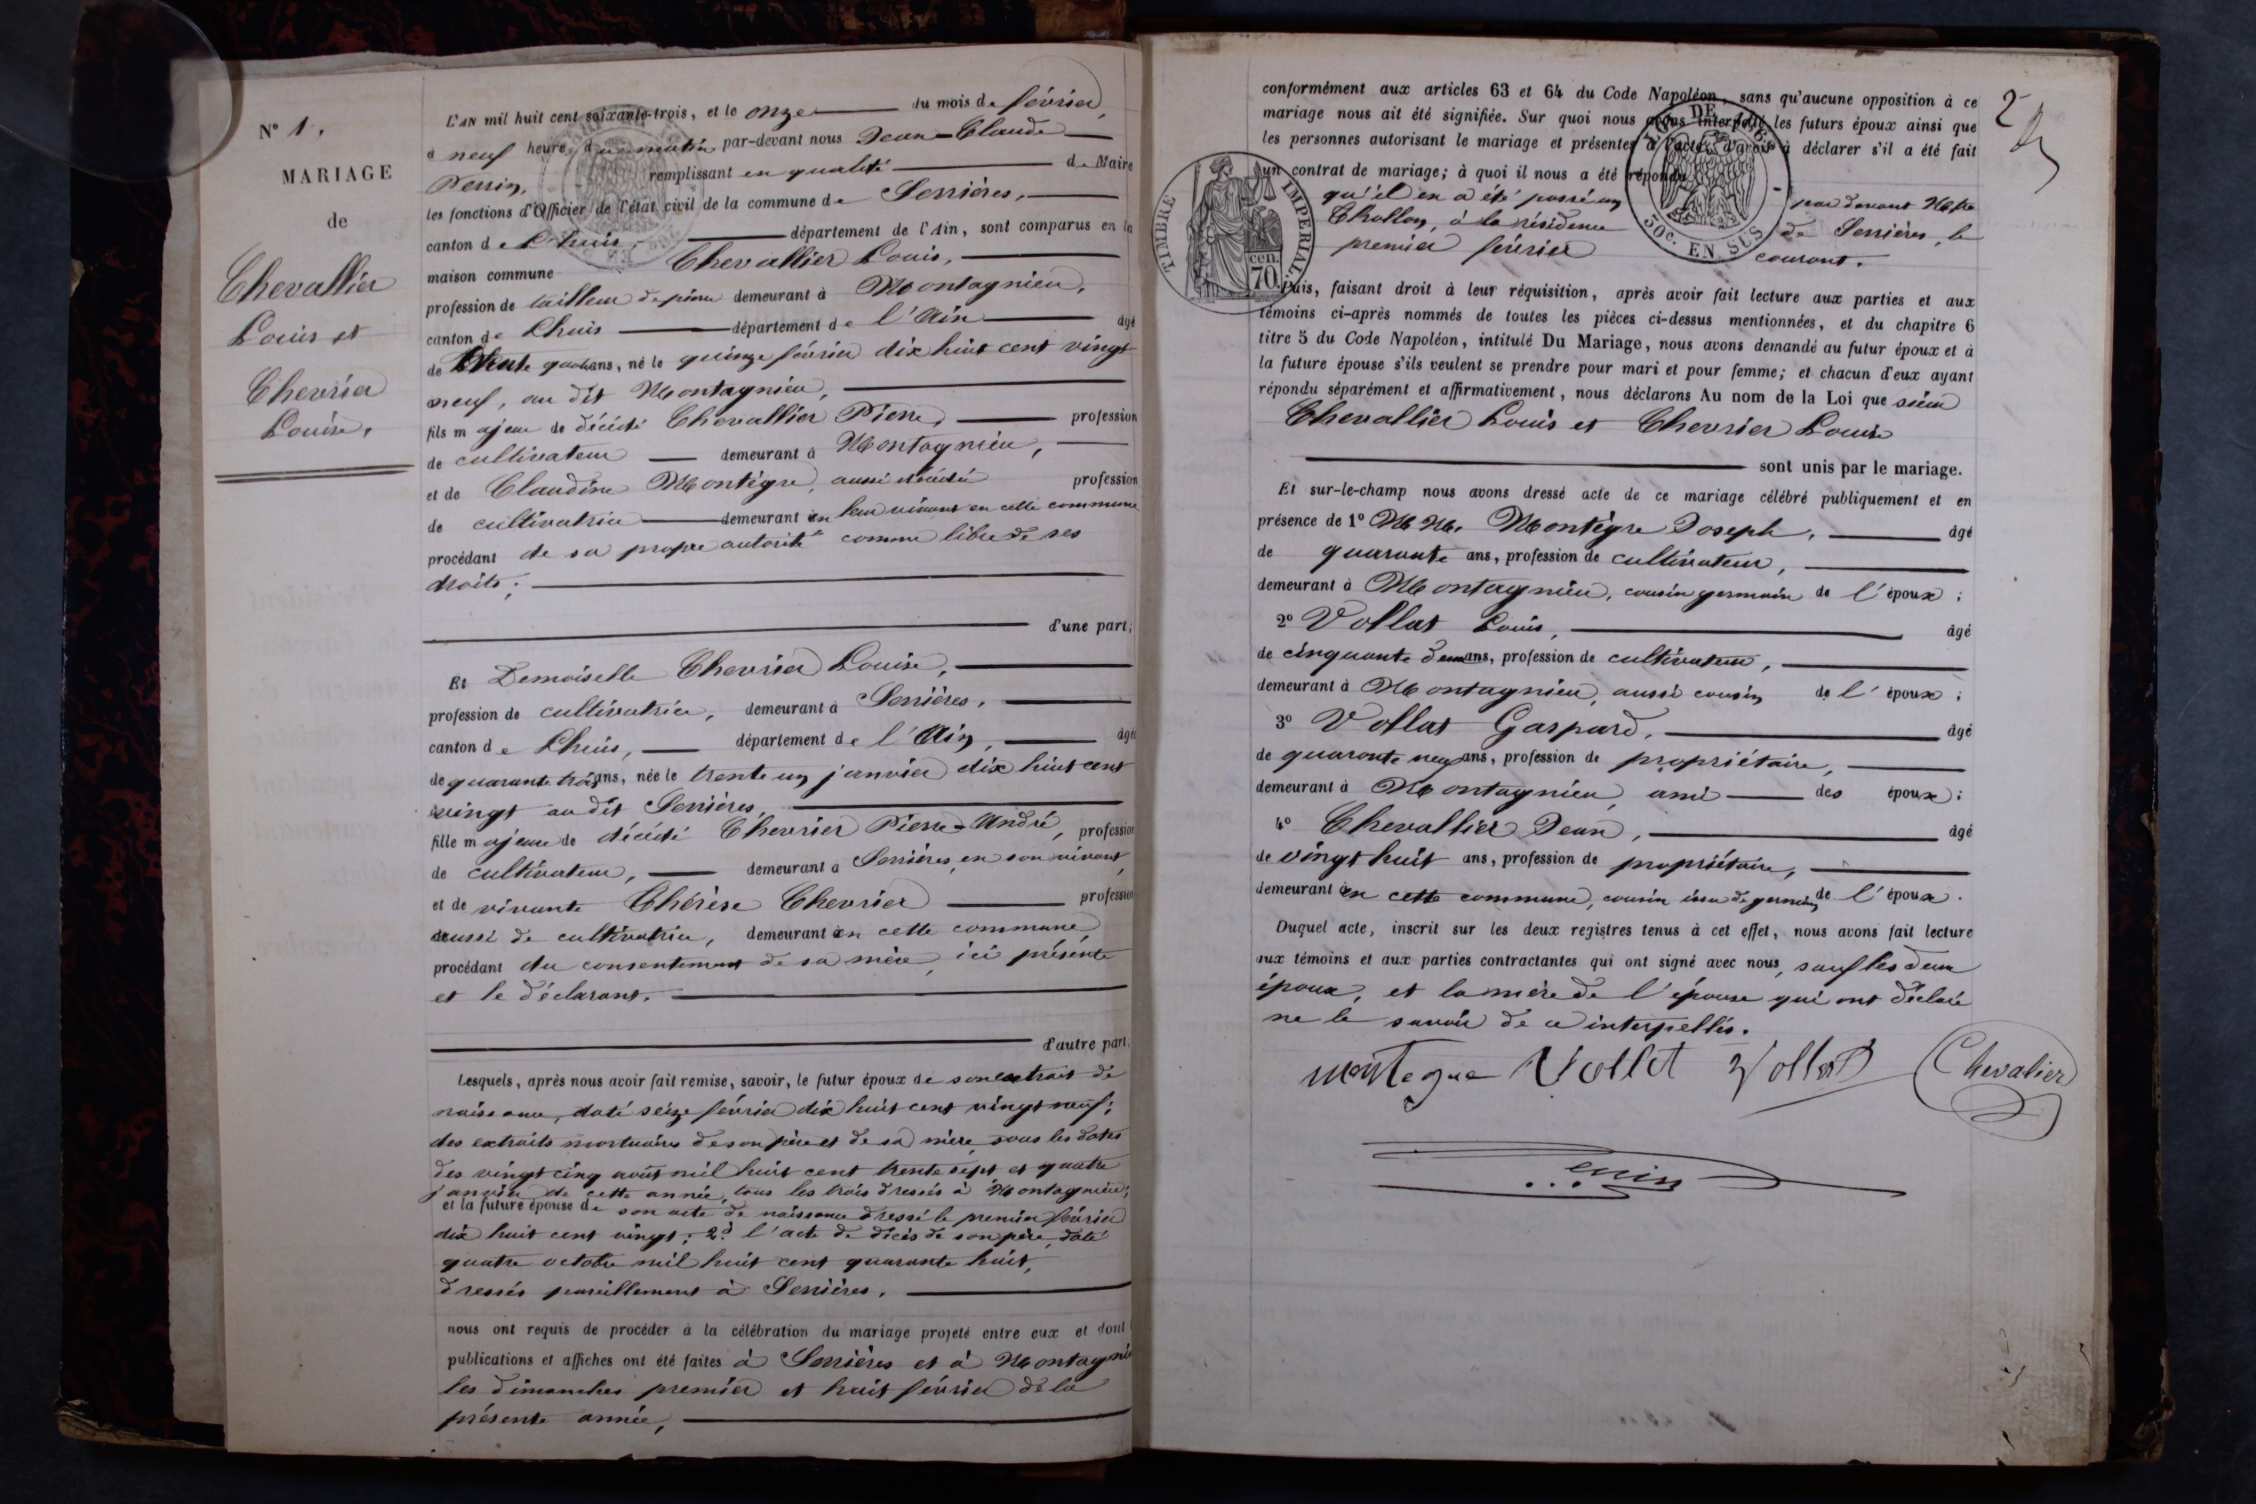 N° 1,
MARIAGE
de
Chevallier
Louis et
Chevrier
Louise,
L'AN mil huit cent soixante-trois, et le onze du mois de février,
à neuf heures du matin par-devant nous Jean-Claude
Perrin, remplissant en qualité de Maire
les fonctions d'Officier de l'état civil de la commune de Serrières,
canton de Lhuis, département de l'Ain, sont comparus en la
maison commune Chevallier Louis,
profession de tailleur de pierre demeurant à Montagnieu,
canton de Lhuis département de l'Ain âgé
de trente quatre ans, né le quinze février dix huit cent vingt
neuf, au dit Montagnieu,
fils majeur de décédé Chevallier Pierre, profession
de cultivateur demeurant à Montagnieu,
et de Claudine Montègre, aussi décédée profession
de cultivatrice demeurant en leur vivant en cette commune
procédant de sa propre autorité comme libre de ses
droits;
d'une part;
Et Demoiselle Chevrier Louise,
profession de cultivatrice, demeurant à Serrières,
canton de Lhuis, département de l'Ain, âgé
de quarante trois ans, née le trente un janvier dix huit cent
vingt au dit Serrières,
fille majeure de décédé Chevrier Pierre-André, profession
de cultivateur, demeurant à Serrières, en son vivant,
et de vivante Thérèse Chevrier profession
aussi de cultivatrice, demeurant en cette commune
procédant du consentement de sa mère, ici présente
et le déclarant.
d'autre part.
Lesquels, après nous avoir fait remise, savoir, le futur époux de son extrait de
naissance, daté seize février dix huit cent vingt neuf;
des extraits mortuaires de son père et de sa mère, sous les dates
des vingt cinq août mil huit cent trente sept et quatre
janvier de cette année, tous les trois dressés à Montagnieu;
et la future épouse de son acte de naissance dressé le premier février
dix huit cent vingt; 2° l'acte de décès de son père, daté
quatre octobre mil huit cent quarante huit,
dressés pareillement à Serrières.
nous ont requis de procéder à la célébration du mariage projeté entre eux et dont
publications et affiches ont été faites à Serrières et à Montagnieu
les dimanches premier et huit février de la
présente année,
2
conformément aux articles 63 et 64 du Code Napoléon, sans qu'aucune opposition à ce
mariage nous ait été signifiée. Sur quoi nous avons interpellé les futurs époux ainsi que
les personnes autorisant le mariage et présentes à l'acte, d'avoir à déclarer s'il a été fait
un contrat de mariage; à quoi il nous a été répondu
qu'il en a été passé un par devant Me
Chollon, à la résidence de Serrières, le
premier février courant.
TIMBRE IMPERIAL.
cen.
70.
50c. EN SUS
Puis, faisant droit à leur réquisition, après avoir fait lecture aux parties et aux
témoins ci-après nommés de toutes les pièces ci-dessus mentionnées, et du chapitre 6
titre 5 du Code Napoléon, intitulé Du Mariage, nous avons demandé au futur époux et à
la future épouse s'ils veulent se prendre pour mari et pour femme; et chacun d'eux ayant
répondu séparément et affirmativement, nous déclarons Au nom de la Loi que sieur
Chevallier Louis et Chevrier Louise
sont unis par le mariage.
Et sur-le-champ nous avons dressé acte de ce mariage célébré publiquement et en
présence de 1° MM. Montègre Joseph, âgé
de quarante ans, profession de cultivateur,
demeurant à Montagnieu, cousin germain de l'époux;
2° Vollat Louis, âgé
de cinquante deux ans, profession de cultivateur,
demeurant à Montagnieu, aussi cousin de l'époux;
3° Vollat Gaspard, âgé
de quarante neuf ans, profession de propriétaire,
demeurant à Montagnieu, ami des époux;
4° Chevallier Jean, âgé
de vingt huit ans, profession de propriétaire,
demeurant en cette commune, cousin issu de germain de l'époux.
Duquel acte, inscrit sur les deux registres tenus à cet effet, nous avons fait lecture
aux témoins et aux parties contractantes qui ont signé avec nous, sauf les deux
époux, et la mère de l'épouse qui ont déclaré
ne le savoir de ce interpellés.
montegre Vollet Vollat Chevalier
Perrin